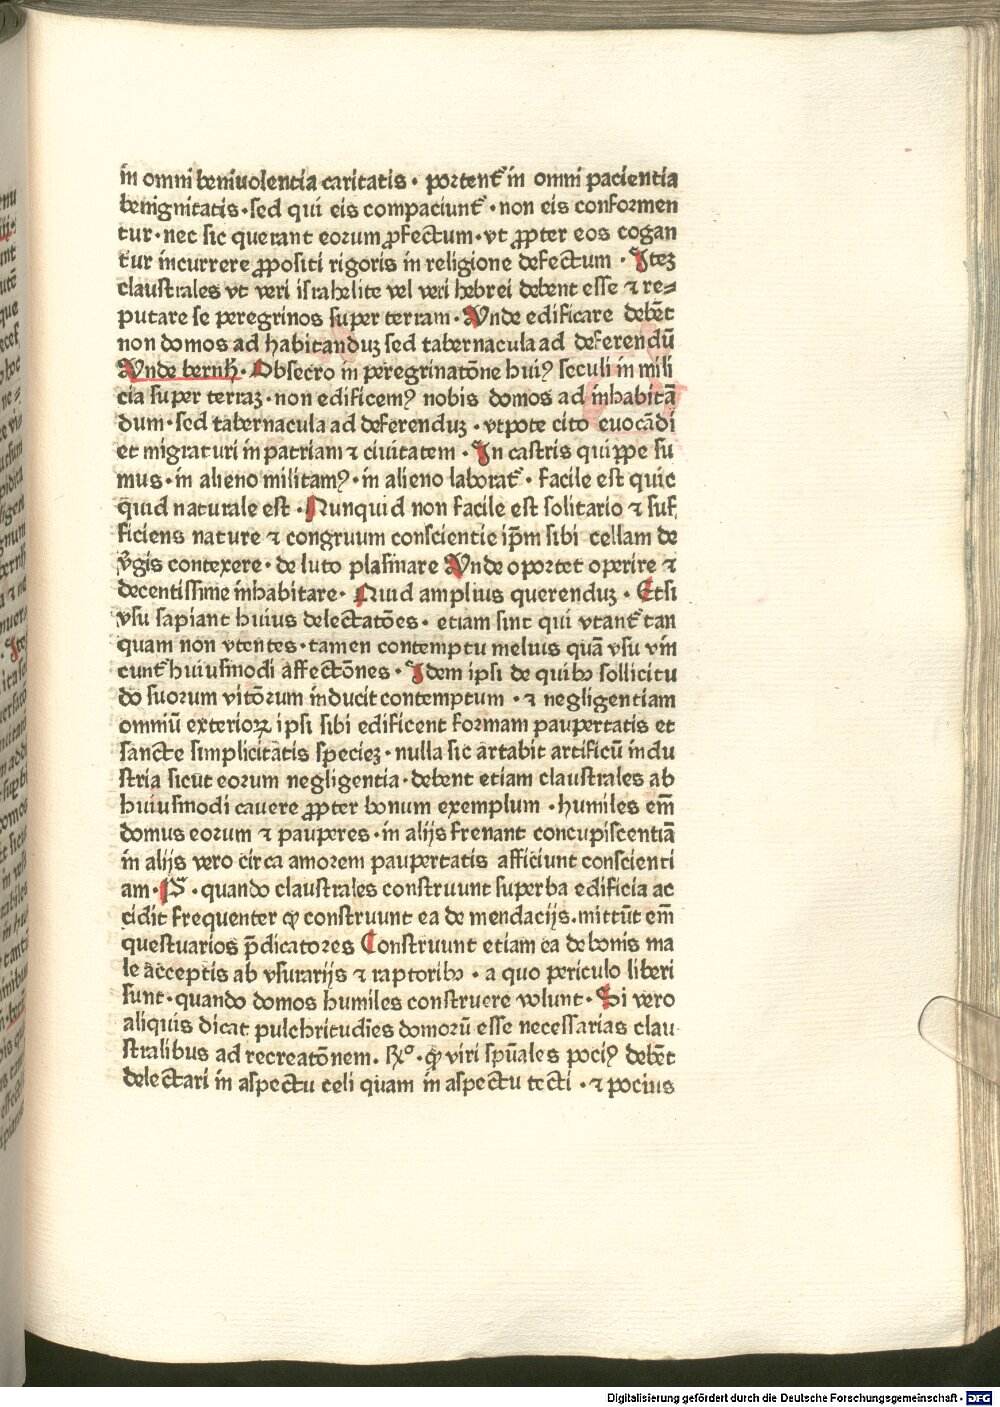 in omni beniuolencia caritatis · portent᷑ in omni paciencia
benignitatis · sed qui eis compaciunt᷑ · non eis conformen
tur · nec sic querant eorum ꝓfectum · vt ꝓpter eos cogan
tur incurrere ꝓpositi rigoris in religione defectum · Iteꝫ
claustrales vt veri israhelite vel veri hebrei debent esse ⁊ re⸗
putare se peregrinos super terram · Vnde edificare debēt
non domos ad habitanduꝫ sed tabernacula ad deferendū
Vnde bernħ · Obsecro in peregrinatōne huiꝰ seculi in mili
cia super terraꝫ · non edificemꝰ nobis domos ad inhabitā
dum · sed tabernacula ad deferenduꝫ · vtpote cito euocādi
et migraturi in patriam ⁊ ciuitatem · In castris quippe su
mus · in alieno militamꝰ · in alieno laborat᷑ · facile est quic
quid naturale est · Nunquid non facile est solitario ⁊ suf
ficiens nature ⁊ congruum conscientie ip̄m sibi cellam de
v̓gis contexere · de luto plasmare Vnde oportet operire ⁊
decentissime inhabitare · Quid amplius querenduꝫ · Etsi
vsu sapiant huius delectatōes · etiam sint qui vtant᷑ tan
quam non vtentes · tamen contemptu melius quā vsu vin
cunt᷑ huiusmodi affectōnes · Idem ipsi de quibꝫ sollicitu
do suorum vitōrum inducit contemptum · ⁊ negligentiam
omniū exterioꝝ ipsi sibi edificent formam paupertatis et
sancte simplicitatis specieꝫ · nulla sic artabit artificū indu
stria sicut eorum negligentia · debent etiam claustrales ab
huiusmodi cauere ꝓpter bonum exemplum · humiles em̄
domus eorum ⁊ pauperes · in alijs frenant concupiscentiā
in alijs vero circa amorem paupertatis afficiunt conscienti
am · IS · quando claustrales construunt superba edificia ac
cidit frequenter ꝙ construunt ea de mendacijs · mittūt em̄
questuarios p̄dicatores Construunt etiam ea de bonis ma
le acceptis ab vsurarijs ⁊ raptoribꝫ · a quo periculo liberi
sunt · quando domos humiles construere volunt · Si vero
aliquis dicat pulchritudīes domorū esse necessarias clau
stralibus ad recreatōnem · ℞º · ꝙ viri sp̄uales pociꝰ debēt
delectari in aspectu celi quam in aspectu tecti · ⁊ pocius
Digitalisierung gefördert durch die Deutsche Forschungsgemeinschaft - DFG